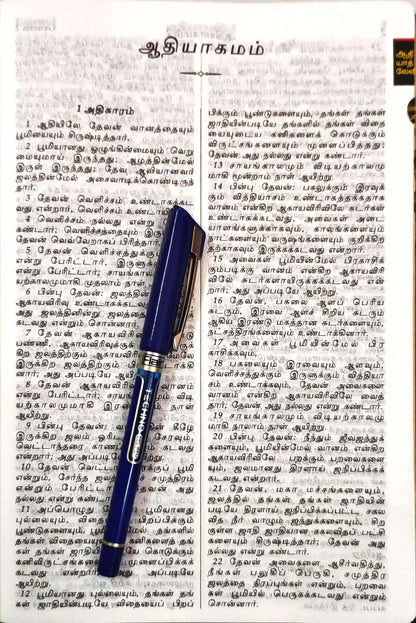 ஆதியாகமம்
1 அதிகாரம்
1 ஆதியிலே தேவன் வானத்தையும்
பூமியையும் சிருஷ்டித்தார்.
2 பூமியானது ஒழுங்கின்மையும் வெறு
மையுமாய் இருந்தது; ஆழத்தின்மேல்
இருள் இருந்தது; தேவ ஆவியானவர்
ஜலத்தின்மேல் அசைவாடிக்கொண்டிருந்
தார்.
3 தேவன் வெளிச்சம் உண்டாகக்கட
வது என்றார்,
4 வெளிச்சம் நல்லது என்று
கண்டார்; வெளிச்சத்தையும்
தேவன் வெவ்வேறாகப் பிரித்தார்.
5 தேவன் வெளிச்சத்துக்குப்
என்று பேரிட்டார்,
என்று பேரிட்டார்; சாயங்கால
யற்காலமுமாகி முதலாம் நாள்
6 பின்பு தேவன்: ஜலத்தின்
ஆகாயவிரிவு உண்டாகக்கடவது
அது ஜலத்தினின்று
கடவது என்றும் சொன்னார்.
7 தேவன் ஆகாயவிரிவை
பண்ணி, ஆகாயவிரிவுக்குக்
இருக்கிற ஜலத்திற்கும்
மேலே இருக்கிற ஜலத்திற்கும்
டாக்கினார்; அது அப்படியே
8 தேவன்
வானம் என்று பேரிட்டார்;
யற்காலமுமாகி இரண்டாம் நாள்
ஆயிற்று.
9 பின்பு தேவன்: வானத்தின் கீழே
இருக்கிற ஜலம் ஓரிடத்தில் சேரவும்,
வெட்டாந்தரை காணப்படவும்
கடவது என்றார்;
10 தேவன் வெட்டாந்தரைக்குப் பூமி
என்றும், சேர்ந்த ஜலத்திற்குச் சமுத்திரம்
என்றும் பேரிட்டார்; தேவன் அது
நல்லது என்று கண்டார்.
11 அப்பொழுது தேவன்: பூமியானது
புல்லையும், விதையைப் பிறப்பிக்கும்
பூண்டுகளையும், பூமியின்மேல் தங்களில்
தங்கள் விதையையுடைய
தங்கள் ஜாதியின்படியே கொடுக்கும்
கனிவிருட்சங்களையும் முளைப்பிக்கக்
கடவது என்றார்; அது அப்படியே
ஆயிற்று.
12 பூமியானது புல்லையும், தங்கள் தங்
கள் ஜாதியின்படியே விதையைப் பிறப்
பிக்கும் பூண்டுகளையும், தங்கள் தங்கள்
ஜாதியின்படியே தங்களில் தங்கள் விதை
யையுடைய கனிகளைக் கொடுக்கும்
விருட்சங்களையும் முளைப்பித்தது;
தேவன் அது நல்லது என்று கண்டார்.
13 சாயங்காலமும் விடியற்காலமு
மாகி மூன்றாம் நாள் ஆயிற்று.
14 பின்பு தேவன்: பகலுக்கும் இரவுக்
கும் வித்தியாசம் உண்டாகத்தக்கதாக
வானம் என்கிற ஆகாயவிரிவிலே சுடர்கள்
உண்டாகக்கடவது, அவைகள் அடை
யாளங்களுக்காகவும், காலங்களையும்
நாட்களையும் வருஷங்களையும் குறிக்கிற
தற்காகவும் இருக்கக்கடவது என்றார்.
15 அவைகள் பூமியின்மேல் பிரகாசிக்
கும்படிக்கு வானம் என்கிற ஆகாயவிரி
விலே சுடர்களாயிருக்கக்கடவது என்றார்;
அது அப்படியே ஆயிற்று.
16 தேவன், பகலை ஆளப் பெரிய
சுடரும், இரவை ஆளச் சிறிய சுடரும்
ஆகிய இரண்டு மகத்தான சுடர்களையும்,
நட்சத்திரங்களையும் உண்டாக்கினார்.
17 அவைகள் பூமியின்மேல் பிர
காசிக்கவும்,
18 பகலையும் இரவையும் ஆளவும்,
வெளிச்சத்துக்கும் இருளுக்கும் வித்தியா
சம் உண்டாக்கவும், தேவன் அவைகளை
வானம் என்கிற ஆகாயவிரிவிலே வைத்
தார்; தேவன் அது நல்லது என்று கண்டார்.
19 சாயங்காலமும் விடியற்காலமு
மாகி நாலாம் நாள் ஆயிற்று.
20 பின்பு தேவன்: நீந்தும் ஜீவஜந்துக்
களையும், பூமியின்மேல் வானம் என்கிற
ஆகாயவிரிவிலே பறக்கும் பறவைகளை
யும், ஜலமானது திரளாய் ஜநிப்பிக்கக்
கடவது என்றார்.
21 தேவன், மகா மச்சங்களையும்,
ஜலத்தில் தங்கள் தங்கள் ஜாதியின்
படியே திரளாய் ஜநிப்பிக்கப்பட்ட சகல
வித நீர் வாழும் ஜந்துக்களையும், சிற
குள்ள ஜாதி ஜாதியான சகலவிதப் பட்சி
களையும் சிருஷ்டித்தார்; தேவன் அது
நல்லது என்று கண்டார்.
22 தேவன் அவைகளை ஆசீர்வதித்து,
நீங்கள் பலுகிப் பெருகி, சமுத்திர
ஜலத்தை நிரப்புங்கள் என்றும், பறவை
கள் பூமியில் பெருகக்கடவது என்றும்
சொன்னார்.
ஆதி
யாத்
லேவி
TECHNO